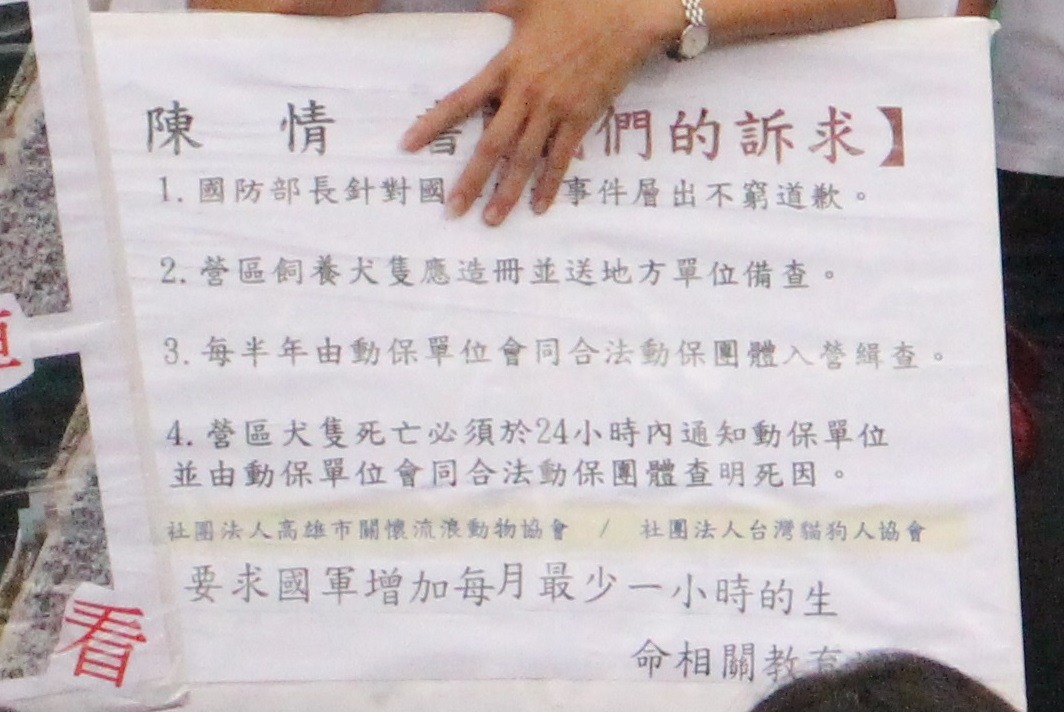 陳情書【我們的訴求】
1.國防部長針對國事件層出不窮道歉。
2.營區飼養犬隻應造冊並送地方單位備查。
3.每半年由動保單位會同合法動保團體入營緝查。
4.營區犬隻死亡必須於24小時內通知動保單位
並由動保單位會同合法動保團體查明死因。
社團法人高雄市關懷流浪動物協會 / 社團法人台灣貓狗人協會
要求國軍增加每月最少一小時的生
命相關教育
看